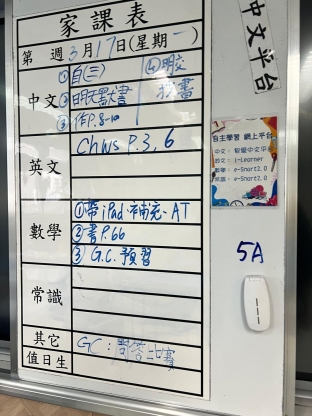 家課表
第 週3月17日(星期一)
中文 ①自(三) ④明交
②明天默書 找書
③作P.8-10
英文 Chws P.3, 6
數學 ①帶iPad、補充、AT
②書P.66
③G.C.預習
常識
其它 GC:問答比賽
值日生
中文平台
自主學習 網上平台
i-Learner
e-Smart2.0
e-Smart2.0
5A